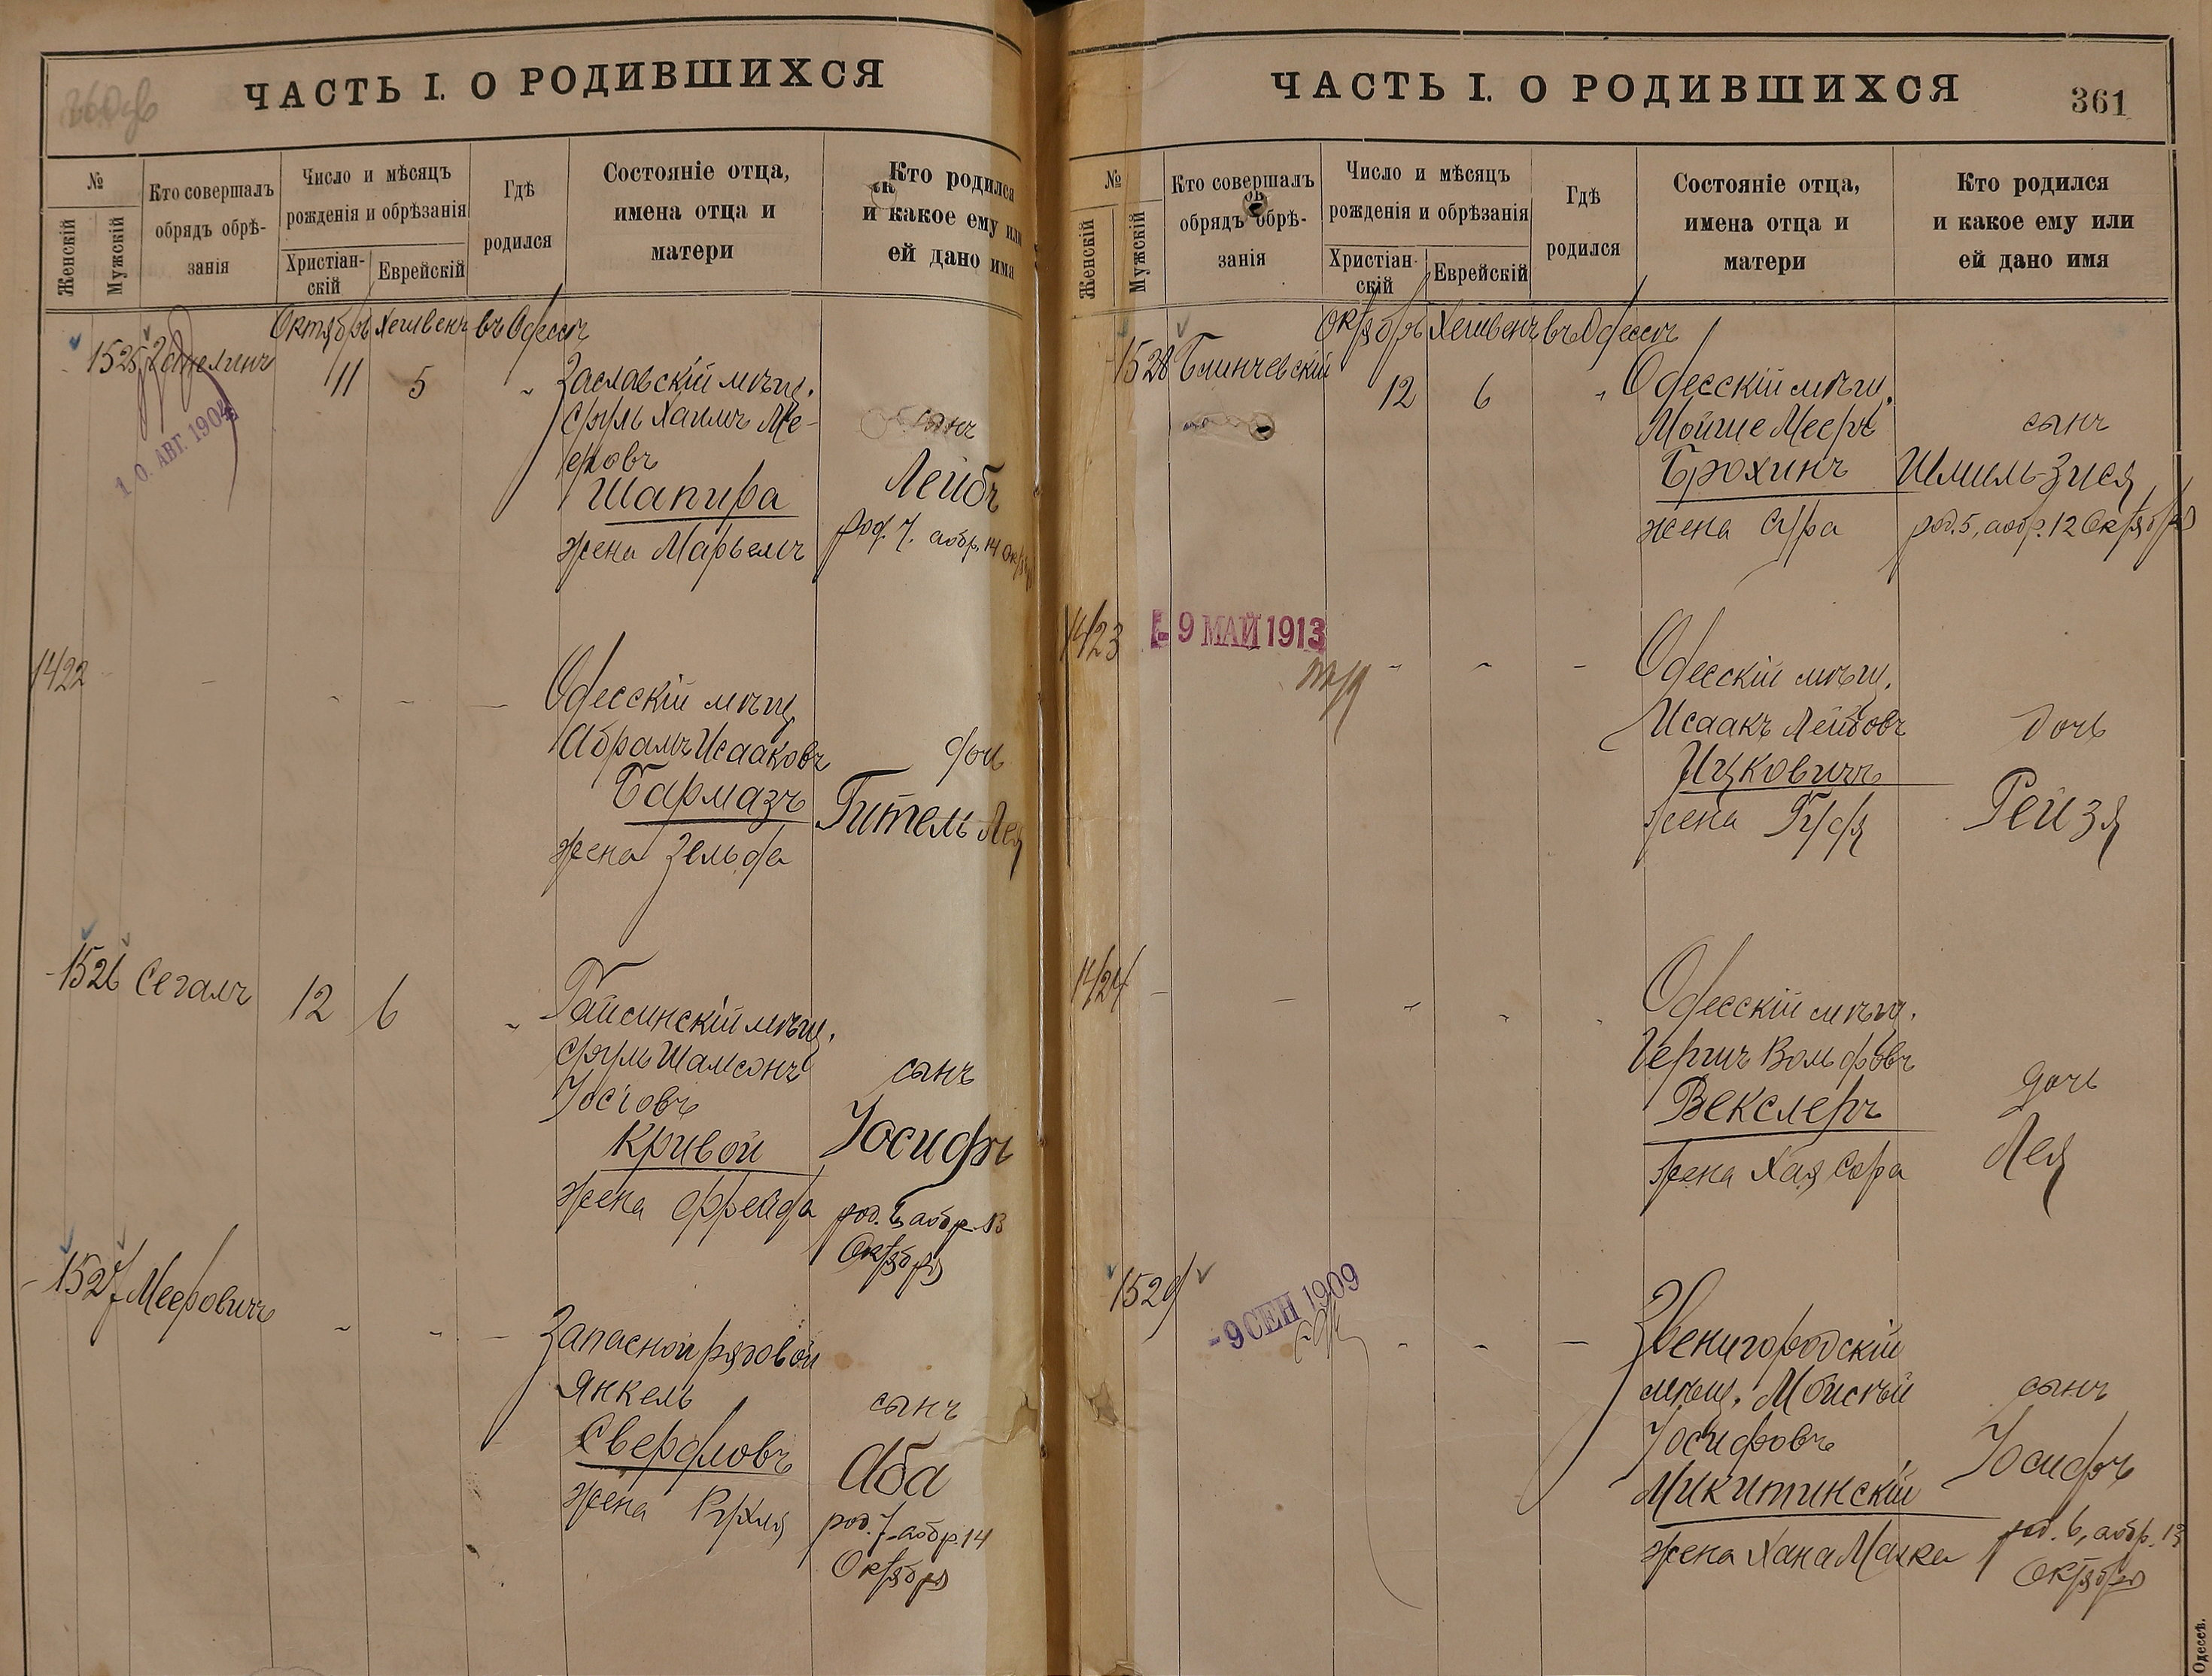 ЧАСТЬ I. О РОДИВШИХСЯ
№
Женскій
Мужскій
Кто совершалъ
обрядъ обрѣ-
занія
Число и мѣсяцъ
рожденія и обрѣзанія
Христіан-
скій
Еврейскій
Гдѣ
родился
Состояніе отца,
имена отца и
матери
Кто родился
и какое ему или
ей дано имя
Октябрь Хешвенъ въ Одессѣ
1525
11 5
10. АВГ. 1904
Заславскій мѣщ.
Сруль Хаимъ Ме-
еровъ
Шапира
жена Марьемъ
сынъ
Лейбъ
род. 7. а обр. 14 Октября
1422
Одесскій мѣщ.
Абрамъ Исааковъ
Бармазъ
жена Зельда
дочь
Гитель Лея
1526 Сегалъ 12 6
Гайсинскій мѣщ.
Сруль Шамсонъ
Іосіовъ
Кривой
жена Фрейда
сынъ
Іосифъ
род. 6, а обр. 13
Октября
1527 Мееровичъ
Запасной рядовой
Янкель
Свердловъ
жена Рухля
сынъ
Аба
род. 7, а обр. 14
Октября
ЧАСТЬ I. О РОДИВШИХСЯ
361
№
Женскій
Мужскій
Кто совершалъ
обрядъ обрѣ-
занія
Число и мѣсяцъ
рожденія и обрѣзанія
Христіан-
скій
Еврейскій
Гдѣ
родился
Состояніе отца,
имена отца и
матери
Кто родился
и какое ему или
ей дано имя
Октябрь Хешвенъ въ Одессѣ
1528 Блинчевскій 12 6
Одесскій мѣщ.
Мойше Мееръ
Брохинъ
жена Сура
сынъ
Шмиль-Зися
род. 5, а обр. 12 Октября
1423
- 9 МАЙ 1913
Одесскій мѣщ.
Исаакъ Лейбовъ
Ицковичъ
жена
дочь
Рейзя
1424
Одесскій мѣщ.
Гершъ Вольфовъ
Векслеръ
жена Хая Сора
дочь
Лея
1529
- 9 СЕН 1909
Звенигородскій
мѣщ. Мойсѣй
Іосифовъ
Микитинскій
жена Хана Малка
сынъ
Іосифъ
род. 6, а обр. 13
Октября
Одессѣ.